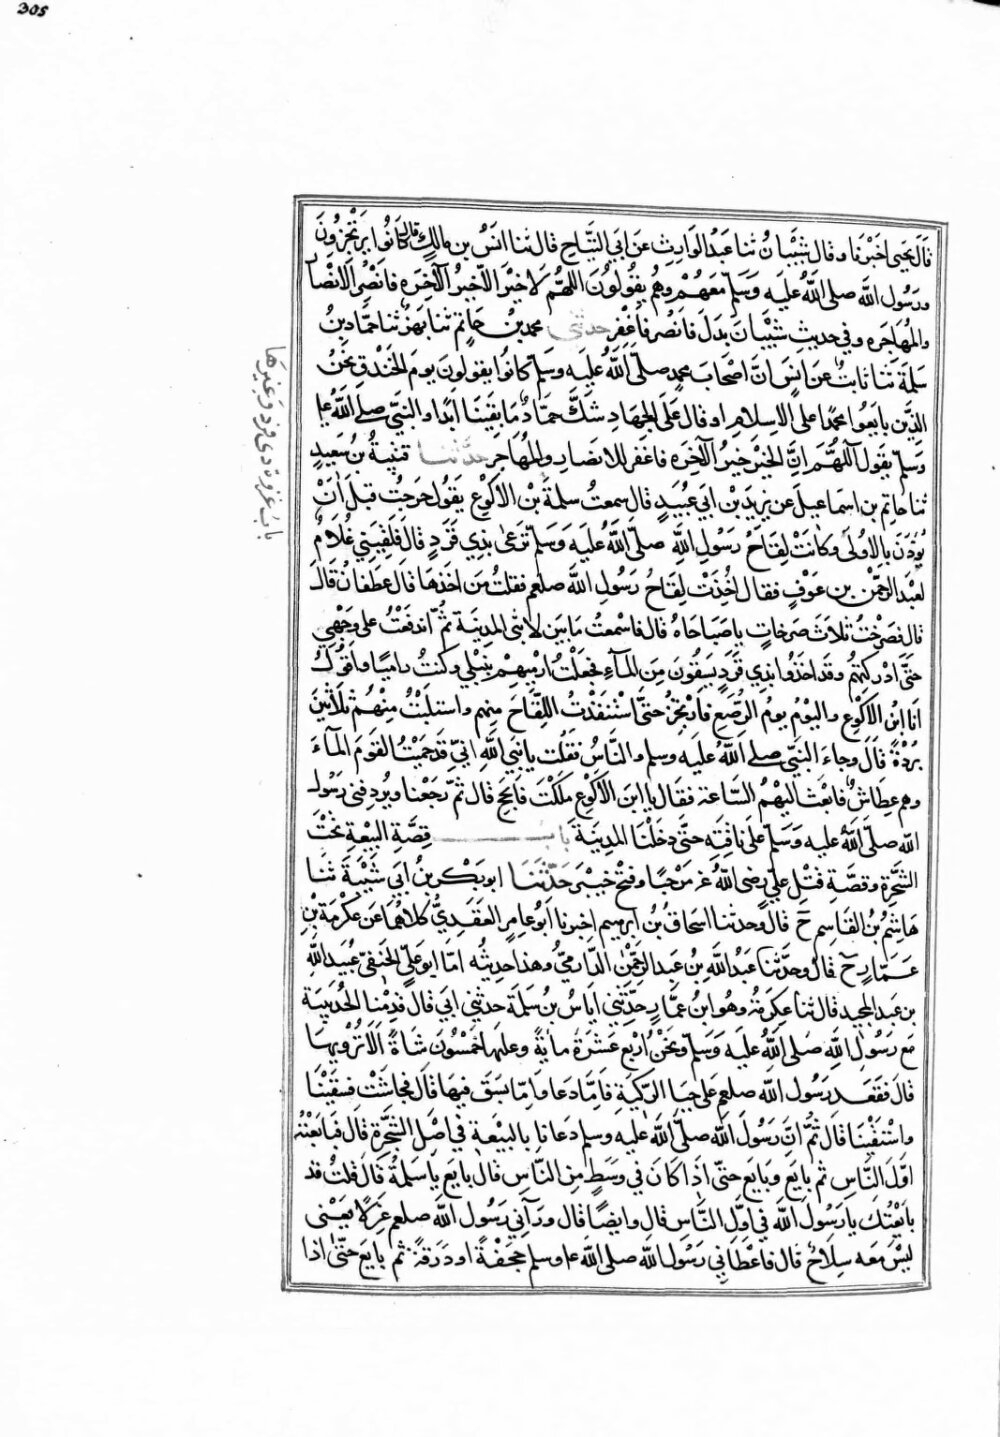 305
قال يحيى اخبرنا وقال شيبان ثنا عبد الوارث عن ابي التياح قال ثنا انس بن مالك قال كانوا يرتجزون
ورسول الله صلى الله عليه وسلم معهم وهم يقولون اللهم لا خير الا خير الآخره فانصر الانصار
والمهاجره وفي حديث شيبان بدل فانصر فاغفر حدثني محمد بن حاتم ثنا بهز ثنا حماد بن
سلمة ثنا ثابت عن انس ان اصحاب محمد صلى الله عليه وسلم كانوا يقولون يوم الخندق نحن
الذين بايعوا محمدا على الاسلام او قال على الجهاد شك حماد ما بقينا ابدا والنبي صلى الله عليه
وسلم يقول اللهم ان الخير خير الآخره فاغفر للانصار والمهاجر حدثنا قتيبة بن سعيد
ثنا حاتم بن اسماعيل عن يزيد بن ابي عبيد قال سمعت سلمة بن الاكوع يقول خرجت قبل ان
يؤذن بالاولى وكانت لقاح رسول الله صلى الله عليه وسلم ترعى بذي قرد قال فلقيني غلام
لعبد الرحمن بن عوف فقال اخذت لقاح رسول الله صلعم فقلت من اخذها قال غطفان قال
قال فصرخت ثلاث صرخات يا صباحاه قال فاسمعت ما بين لابتي المدينة ثم اندفعت على وجهي
حتى ادركتهم وقد اخذوا بذي قرد يسقون من المآء فجعلت ارميهم بنبلي وكنت راميا واقول
انا ابن الاكوع واليوم يوم الرضع فارتجز حتى استنقذت اللقاح منهم واستلبت منهم ثلاثين
بردة قال وجاء النبي صلى الله عليه وسلم والناس فقلت يا نبي الله اني قد حميت القوم المآء
وهم عطاش فابعث اليهم الساعة فقال يا ابن الاكوع ملكت فاسجح قال ثم رجعنا ويردفني رسول
الله صلى الله عليه وسلم على ناقته حتى دخلنا المدينة باب قصة البيعة تحت
الشجرة وقصة قتل علي رضي الله عنه مرحبا وفتح خيبر حدثنا ابو بكر بن ابي شيبة ثنا
هاشم بن القاسم ح قال وحدثنا اسحاق بن ابرهيم اخبرنا ابو عامر العقدي كلاهما عن عكرمة بن
عمار ح قال وحدثنا عبد الله بن عبد الرحمن الدارمي وهذا حديثه انا ابو علي الحنفي عبيد الله
بن عبد المجيد قال ثنا عكرمة وهو ابن عمار حدثني اياس بن سلمة حدثني ابي قال قدمنا الحديبية
مع رسول الله صلى الله عليه وسلم ونحن اربع عشرة ماية وعليها خمسون شاة لا ترويها
قال فقعد رسول الله صلعم على جبا الركية فاما دعا واما بسق فيها قال فجاشت فسقينا
واستقينا قال ثم ان رسول الله صلى الله عليه وسلم دعانا بالبيعة في اصل الشجرة قال فبايعته
اول الناس ثم بايع وبايع حتى اذا كان في وسط من الناس قال بايع يا سلمة قال قلت قد
بايعتك يا رسول الله في اول الناس قال وايضا قال ورآني رسول الله صلعم عزلا يعني
ليس معه سلاح قال فاعطاني رسول الله صلى الله عليه وسلم حجفة او درقة ثم بايع حتى اذا
باب غزوة ذي قرد وغيرها